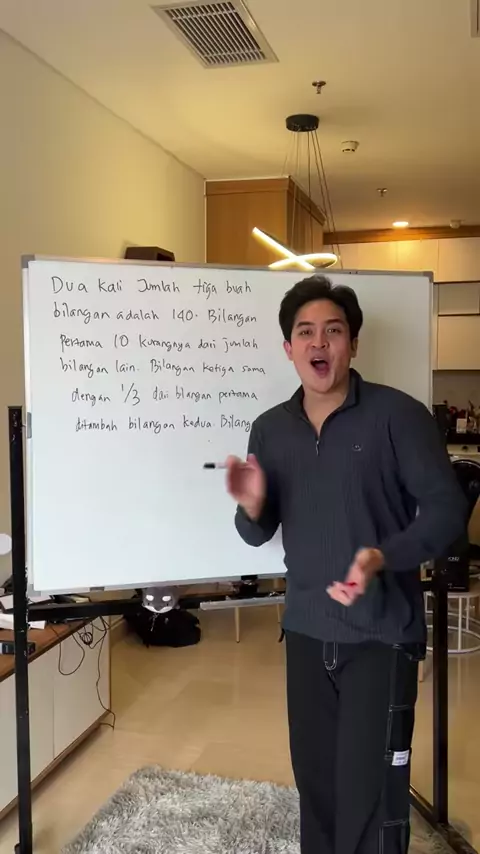 Dua kali Jumlah tiga buah
bilangan adalah 140. Bilangan
pertama 10 kurangnya dari jumlah
bilangan lain. Bilangan ketiga sama
dengan 1/3 dari blangan pertama
ditambah bilangan kedua. Bilang